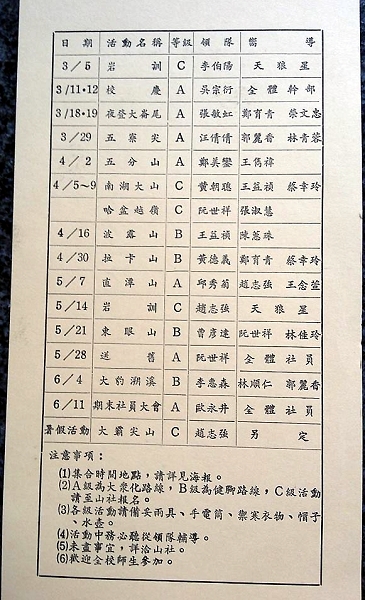 日期 活動名稱 等級 領隊 嚮導
3／5 岩訓 C 李伯陽 天狼星
3/11·12 校慶 A 吳宗衍 全體幹部
3/18·19 夜登大崙尾 A 張敏虹 鄭育青 榮文忠
3/29 五寮尖 A 汪倩倩 郭麗香 林青蓉
4／2 五分山 A 鄭美鑾 王儁禕
4／5～9 南湖大山 C 黃朝聰 王益禎 蔡幸玲
哈盆越嶺 C 阮世祥 張淑慧
4／16 波露山 B 王益禎 陳蕙珠
4／30 拉卡山 B 黃德義 鄭育青 蔡幸玲
5／7 直潭山 A 邱秀菊 趙志強 王念萱
5／14 岩訓 C 趙志強 天狼星
5／21 東眼山 B 曹彥達 阮世祥 林佳玲
5／28 送舊 A 阮世祥 全體社員
6／4 大豹溯溪 B 李惠森 林順仁 郭麗香
6／11 期末社員大會 A 歐永井 全體社員
暑假活動 大霸尖山 C 趙志強 另定
注意事項：
(1)集合時間地點，請詳見海報。
(2)A級為大眾化路線，B級為健腳路線，C級活動
請至山社報名。
(3)各級活動請備妥雨具、手電筒、禦寒衣物、帽子
、水壺。
(4)活動中務必聽從領隊輔導。
(5)未盡事宜，詳洽山社。
(6)歡迎全校師生參加。